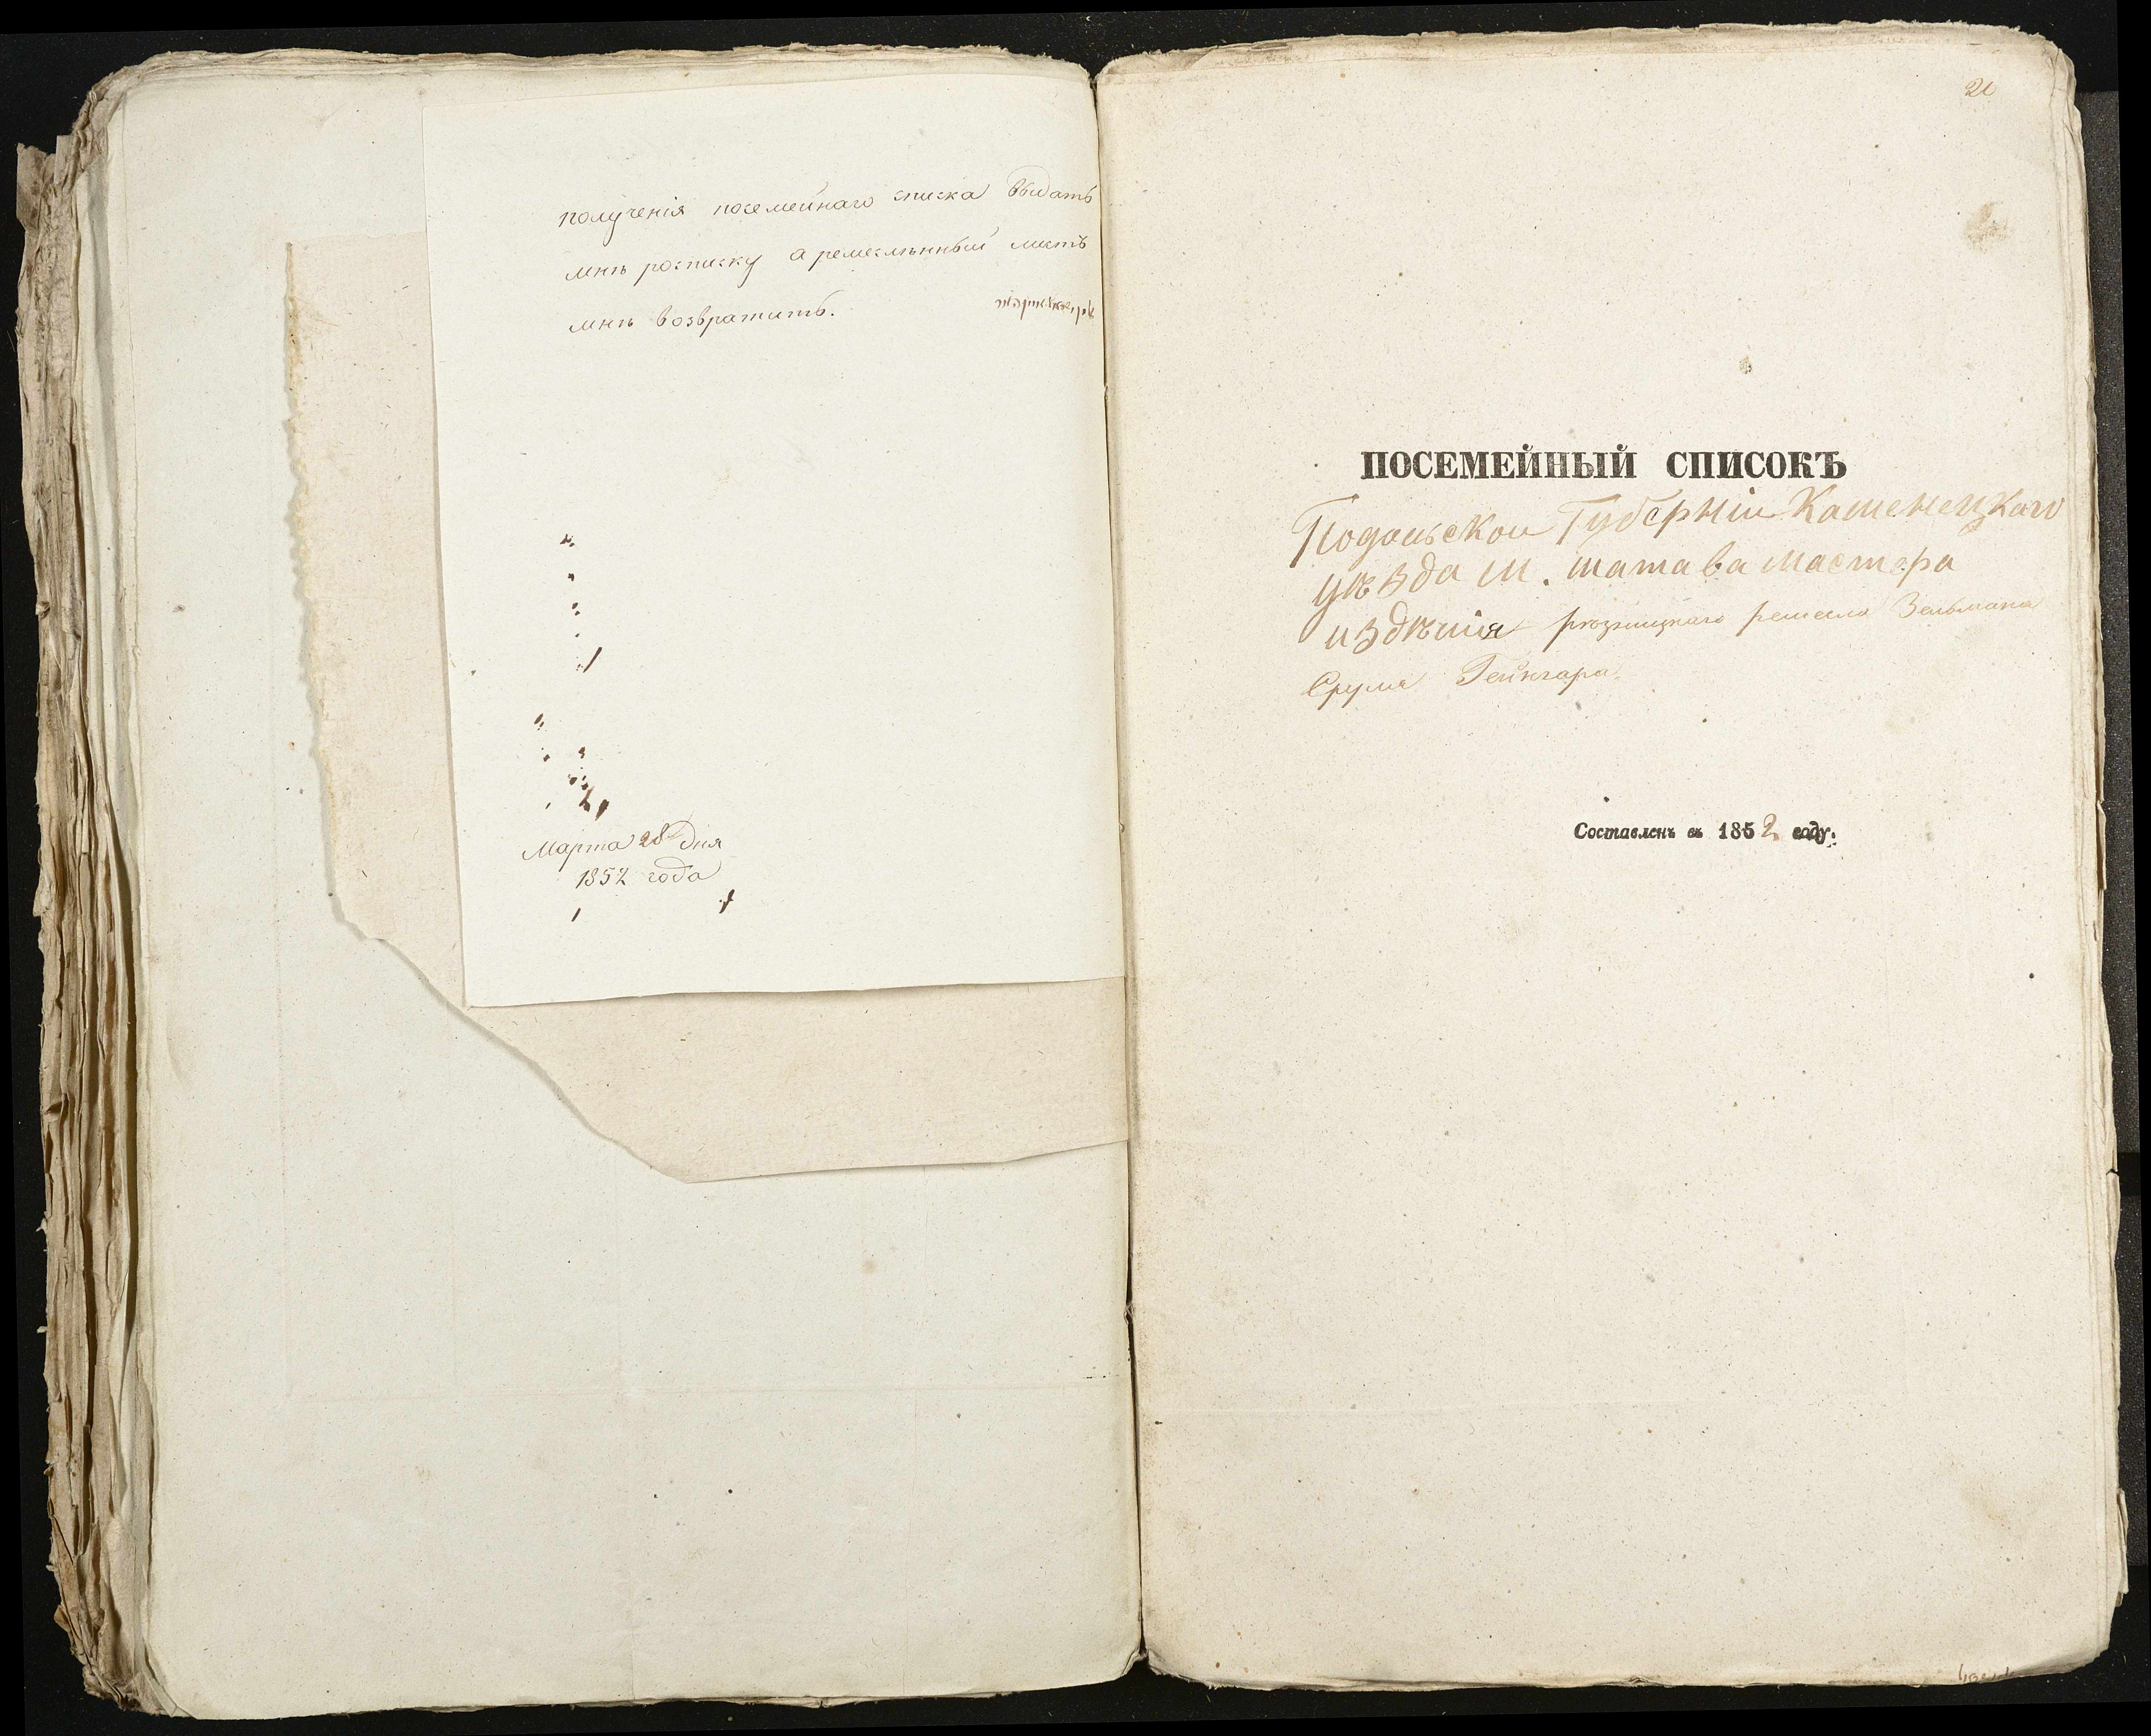 полученія посемейнаго списка выдать
мнѣ росписку а ремесленный листъ
мнѣ возвратить.
Марта 28 дня
1852 года
21
ПОСЕМЕЙНЫЙ СПИСОКЪ
Подольской Губерніи Каменецкаго
уѣзда м. шатава мастера
издѣлия рѣзницкаго ремесла Зельмана
Срумя Гейнгара.
Составленъ въ 1852 году.